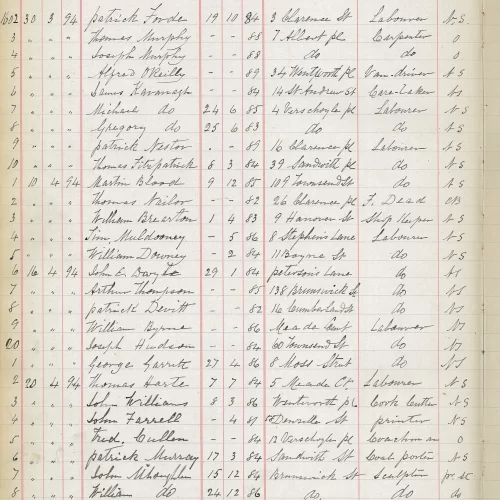 1602 30 3 94 Patrick Forde 19 10 84 3 Clarence St Labourer N S
3 " " " Thomas Murphy - - 88 7 Albert pl Carpenter O
4 " " " Joseph Murphy - - 88 do do O
5 " " " Alfred O'Reilly - - 89 34 Wentworth pl Van-driver N S
6 " " " James Kavanagh - - 84 14 St Andrew St Care-Taker N S
7 " " " Michael do 24 6 85 4 Verschoyle pl Labourer N S
8 " " " Gregory do 25 6 83 do do N S
9 " " " Patrick Nestor - - 89 16 Clarence pl do N S
10 " " " Thomas Fitzpatrick 8 3 84 39 Sandwith pl do N S
1 10 4 94 Martin Blood 9 12 85 109 Townsend St do N S
2 " " " Thomas Nailor - - 82 26 Clarence pl F. Dead
3 " " " William Brearton 1 4 83 9 Hanover St Shop Keeper N S
4 " " " Jim Muldooney - 5 86 8 Stephens Lane Labourer N S
5 " " " William Downey - 2 84 11 Boyne St do N S
6 16 4 94 John E. Doyle 29 1 84 Petersons Lane do NS
7 " " " Arthur Thompson - - 85 138 Brunswick St do NS
8 " " " Patrick Devitt - - 82 16 Cumberland St do NS
9 " " " William Byrne - - 86 Meade Court Labourer NS
20 " " " Joseph Hudson - - 84 60 Townsend St do NS
1 " " " George Garritt 27 4 86 8 Moss Street do NS
2 20 4 94 Thomas Harte 7 7 84 5 Meade Ct Labourer N S
3 " " " John Williams 8 3 86 Wentworth pl Cork Cutter N S
4 " " " John Farrell - 4 81 Denzille St printer N S
5 " " " Fred. Cullen - - 84 12 Verschoyle pl Coachman O
6 " " " Patrick Murray 17 3 84 Sandwith St Coal porter N S
7 " " " John 15 12 84 Brunswick St Sculptor pr. st
8 " " " William do 24 12 86 do. do. do